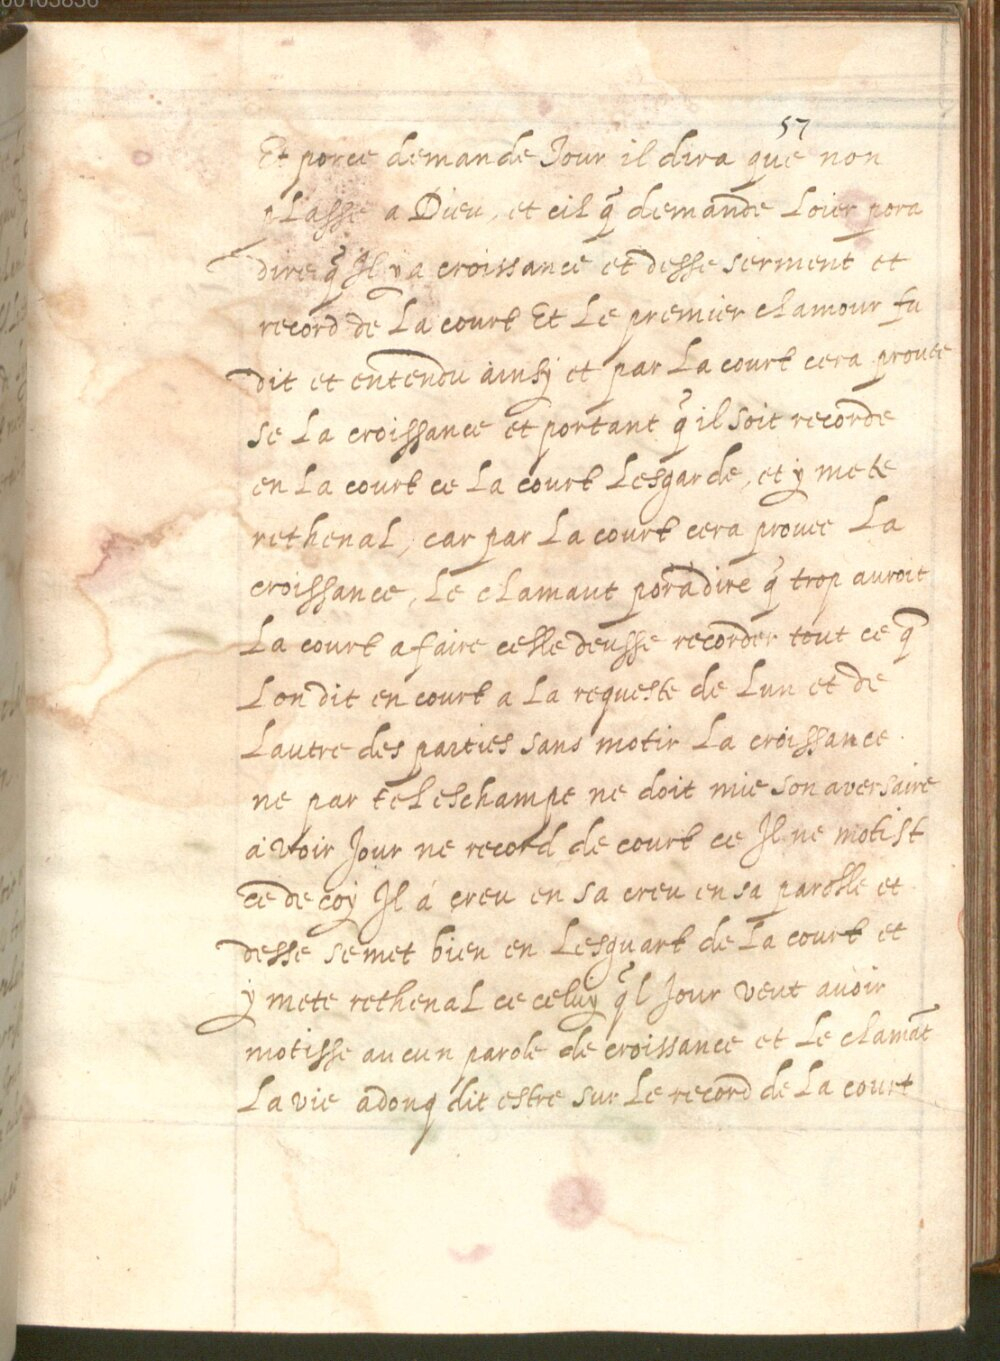 57
Et porce demande Jour il dira que non
plasse a Dieu, et cil q̃ demande Loier pora
dire q̃ Il y a croissance et desse serment et
record de La court Et Le premier clamour fu
dit et entendu ainsj et par La court cera prouee
se La croissance et portant q̃ il soit recorde
en La court ce La court Lesgarde, et y mete
rethenal, car par La court cera prouee La
croissance, Le clamant pora dire q̃ trop auroit
La court a faire celle deusse recorder tout ce q̃
Lon dit en court a La requeste de Lun et de
Lautre des parties sans motir La croissance.
ne par tel eschampe ne doit mie son aversaire
avoir Jour ne record de court ce Il ne motist
ce de coy Il a creu en sa creu en sa parolle et
desse se met bien en Lesguart de La court et
y mete rethenal ce celuy q̃l Jour veut avoir
motisse aucun parole de croissance et Le clamãt
La vie adonq dit estre sur Le record de La court